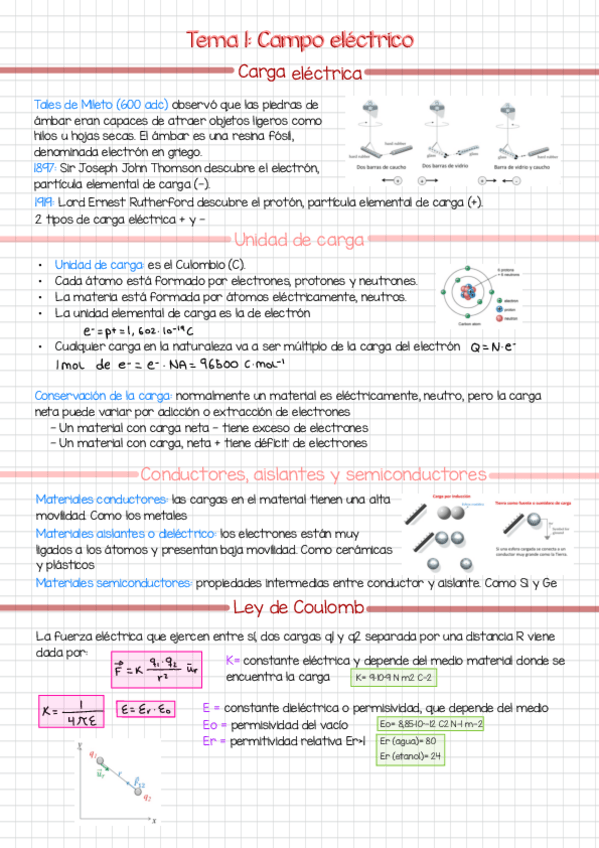 Tema 1: Campo eléctrico
Carga eléctrica
Tales de Mileto (600 adc) observó que las piedras de
ámbar eran capaces de atraer objetos ligeros como
hilos u hojas secas. El ámbar es una resina fósil,
denominada electrón en griego.
1897: Sir Joseph John Thomson descubre el electrón,
partícula elemental de carga (-).
1919: Lord Ernest Rutherford descubre el protón, partícula elemental de carga (+).
2 tipos de carga eléctrica + y -
hard rubber
hard rubber
glass
glass
glass
hard rubber
Dos barras de caucho
Dos barras de vidrio
Barra de vidrio y caucho
Unidad de carga
• Unidad de carga: es el Culombio (C).
• Cada átomo está formado por electrones, protones y neutrones.
• La materia está formada por átomos eléctricamente, neutros.
• La unidad elemental de carga es la de electrón
e⁻=p⁺=1,602·10⁻¹⁹C
• Cualquier carga en la naturaleza va a ser múltiplo de la carga del electrón Q=N·e⁻
1mol de e⁻= e⁻·NA=96500 C·mol⁻¹
6 protons
+ 6 neutrons
electron
proton
neutron
Carbon atom
Conservación de la carga: normalmente un material es eléctricamente, neutro, pero la carga
neta puede variar por adicción o extracción de electrones
- Un material con carga neta - tiene exceso de electrones
- Un material con carga, neta + tiene déficit de electrones
Conductores, aislantes y semiconductores
Materiales conductores: las cargas en el material tienen una alta
movilidad. Como los metales
Materiales aislantes o dieléctrico: los electrones están muy
ligados a los átomos y presentan baja movilidad. Como cerámicas
y plásticos
Materiales semiconductores: propiedades intermedias entre conductor y aislante. Como Si y Ge
Carga por inducción
Tierra como fuente o sumidero de carga
Si una esfera cargada se conecta a un
conductor muy grande como la Tierra.
Ley de Coulomb
La fuerza eléctrica que ejercen entre sí, dos cargas q1 y q2 separada por una distancia R viene
dada por:
F⃗=K q₁·q₂/r² u⃗r
K= constante eléctrica y depende del medio material donde se
encuentra la carga
K= 9·10·9 N m2 C-2
K= 1/4πε
ε=εr·εo
E = constante dieléctrica o permisividad, que depende del medio
Eo = permisividad del vacío
Eo= 8,85·10-12 C2 N-1 m-2
Er = permitividad relativa Er>1
Er (agua)= 80
Er (etanol)= 24
y
q₁
u⃗r
r
F⃗12
q₂
x